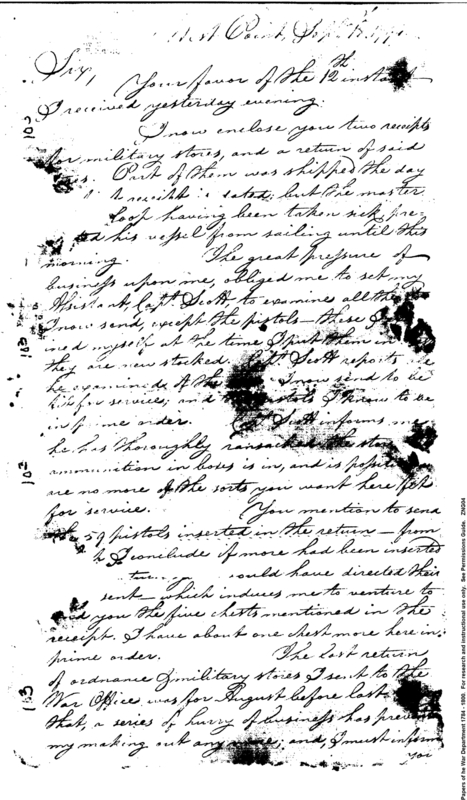 West Point, Sept. 13, 179
Sir,
Your favor of the 12th instant
I received yesterday evening.
I now enclose you two receipts
for military stores, and a return of said
Part of them was shipped the day
receipt is dated; but the master
sloop having been taken sick, pre-
ed his vessel from sailing until this
morning. The great pressure of
business upon me, obliged me to set my
Assistant, Capt. Scott to examine all the
I now send, except the pistols - these I
ined myself at the time I put them in
they are new stocked. Capt. Scott reports
he examined of the I now send to be
fit for service, and the pistols I know to be
in prime order. Capt. Scott informs me
he has thoroughly ransacked the store
ammunition in boxes is in, and is positi
are no more of the sorts you want here fit
for service. You mention to send
the 59 pistols inserted in the return - from
I conclude if more had been inserted
would have directed their
sent - which induces me to venture to
send you the five chests mentioned in the
receipt. I have about one chest more here in
prime order. The last return
of ordnance & military stores I sent to the
War Office was for August before last
that, a series of hurry of business has preven
my making out any ; and I must inform
you
103
103
103
103
Papers of he War Department 1784 - 1800. For research and instructional use only. See Permissions Guide. ZNS04